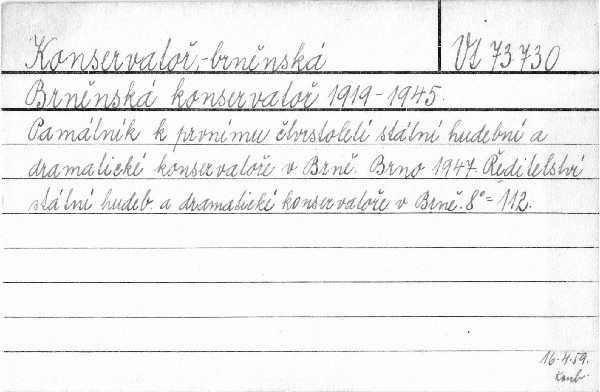 Konservatoř,-brněnská VL 73.730
Brněnská konservatoř 1919-1945.
Památník k prvnímu čtvrstoletí stální hudební a
dramatické konservatoře v Brně. Brno 1947. Ředitelství
státní hudeb. a dramatické konservatoře v Brně. 8°= 112.
16.4.59.